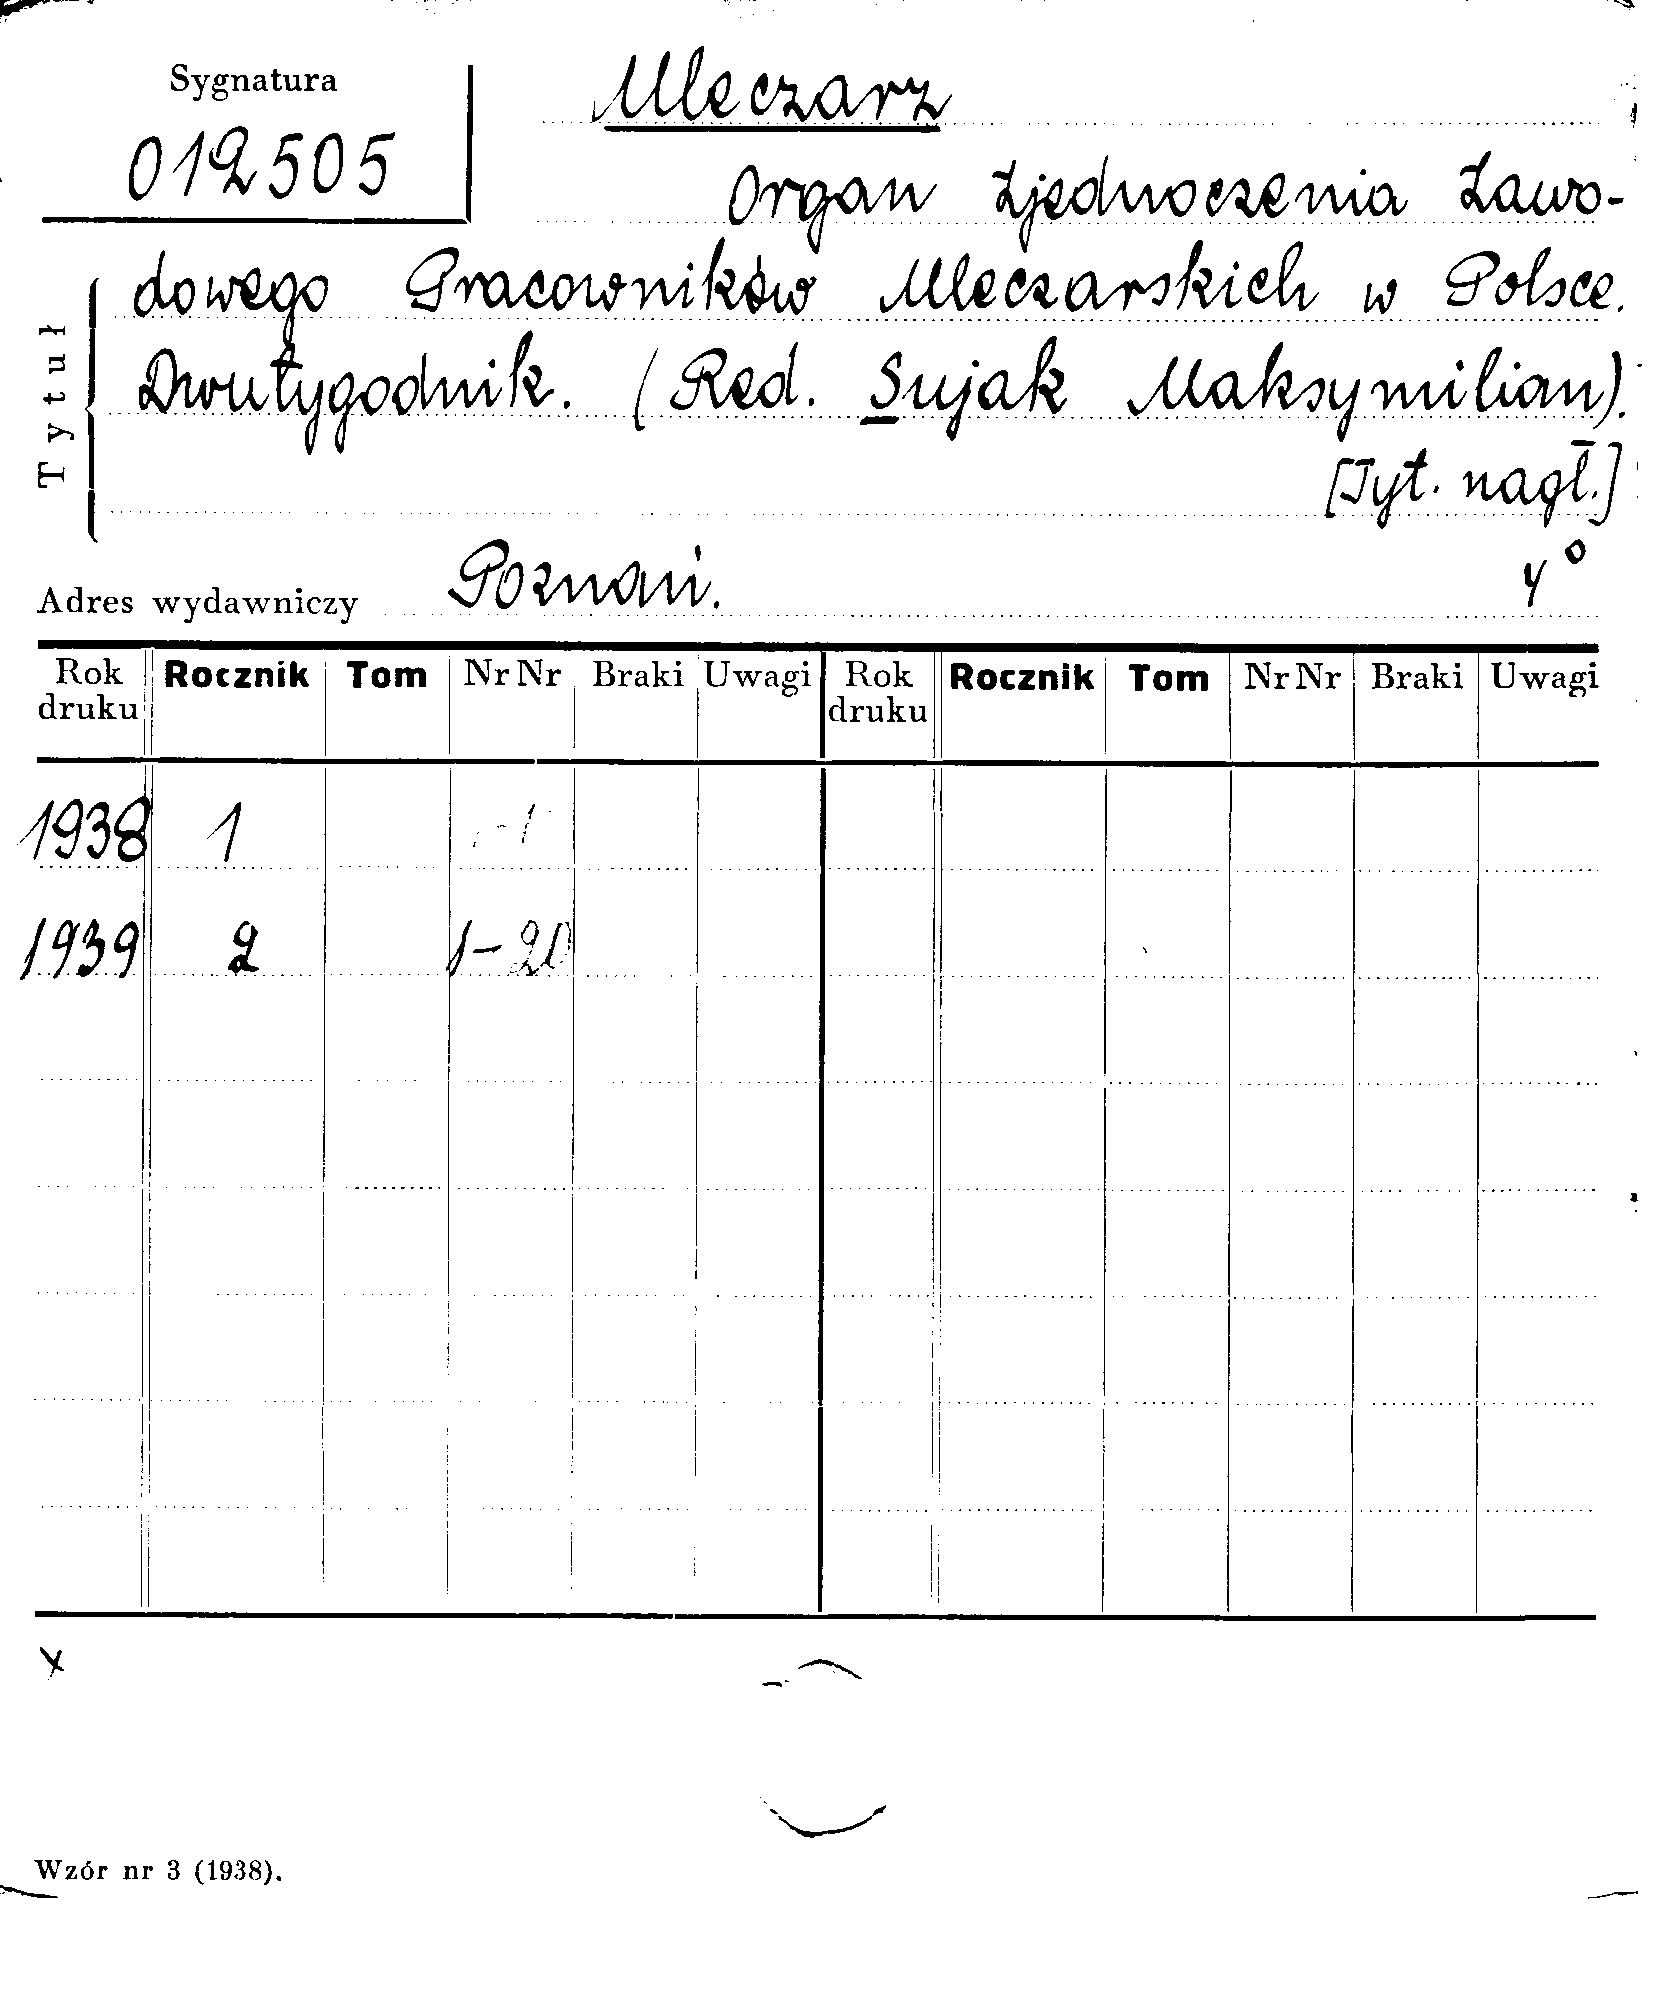 Sygnatura
012505
Mleczarz
Organ Zjednoczenia Zawo-
dowego Pracowników Mleczarskich w Polsce.
Dwutygodnik. (Red. Sujak Maksymilian).
[Tyt. nagł.]
Tytuł
Adres wydawniczy Poznań. 4°
Rok druku Rocznik Tom Nr Nr Braki Uwagi Rok druku Rocznik Tom Nr Nr Braki Uwagi
1938 1
1939 2 1-20
x
Wzór nr 3 (1938).